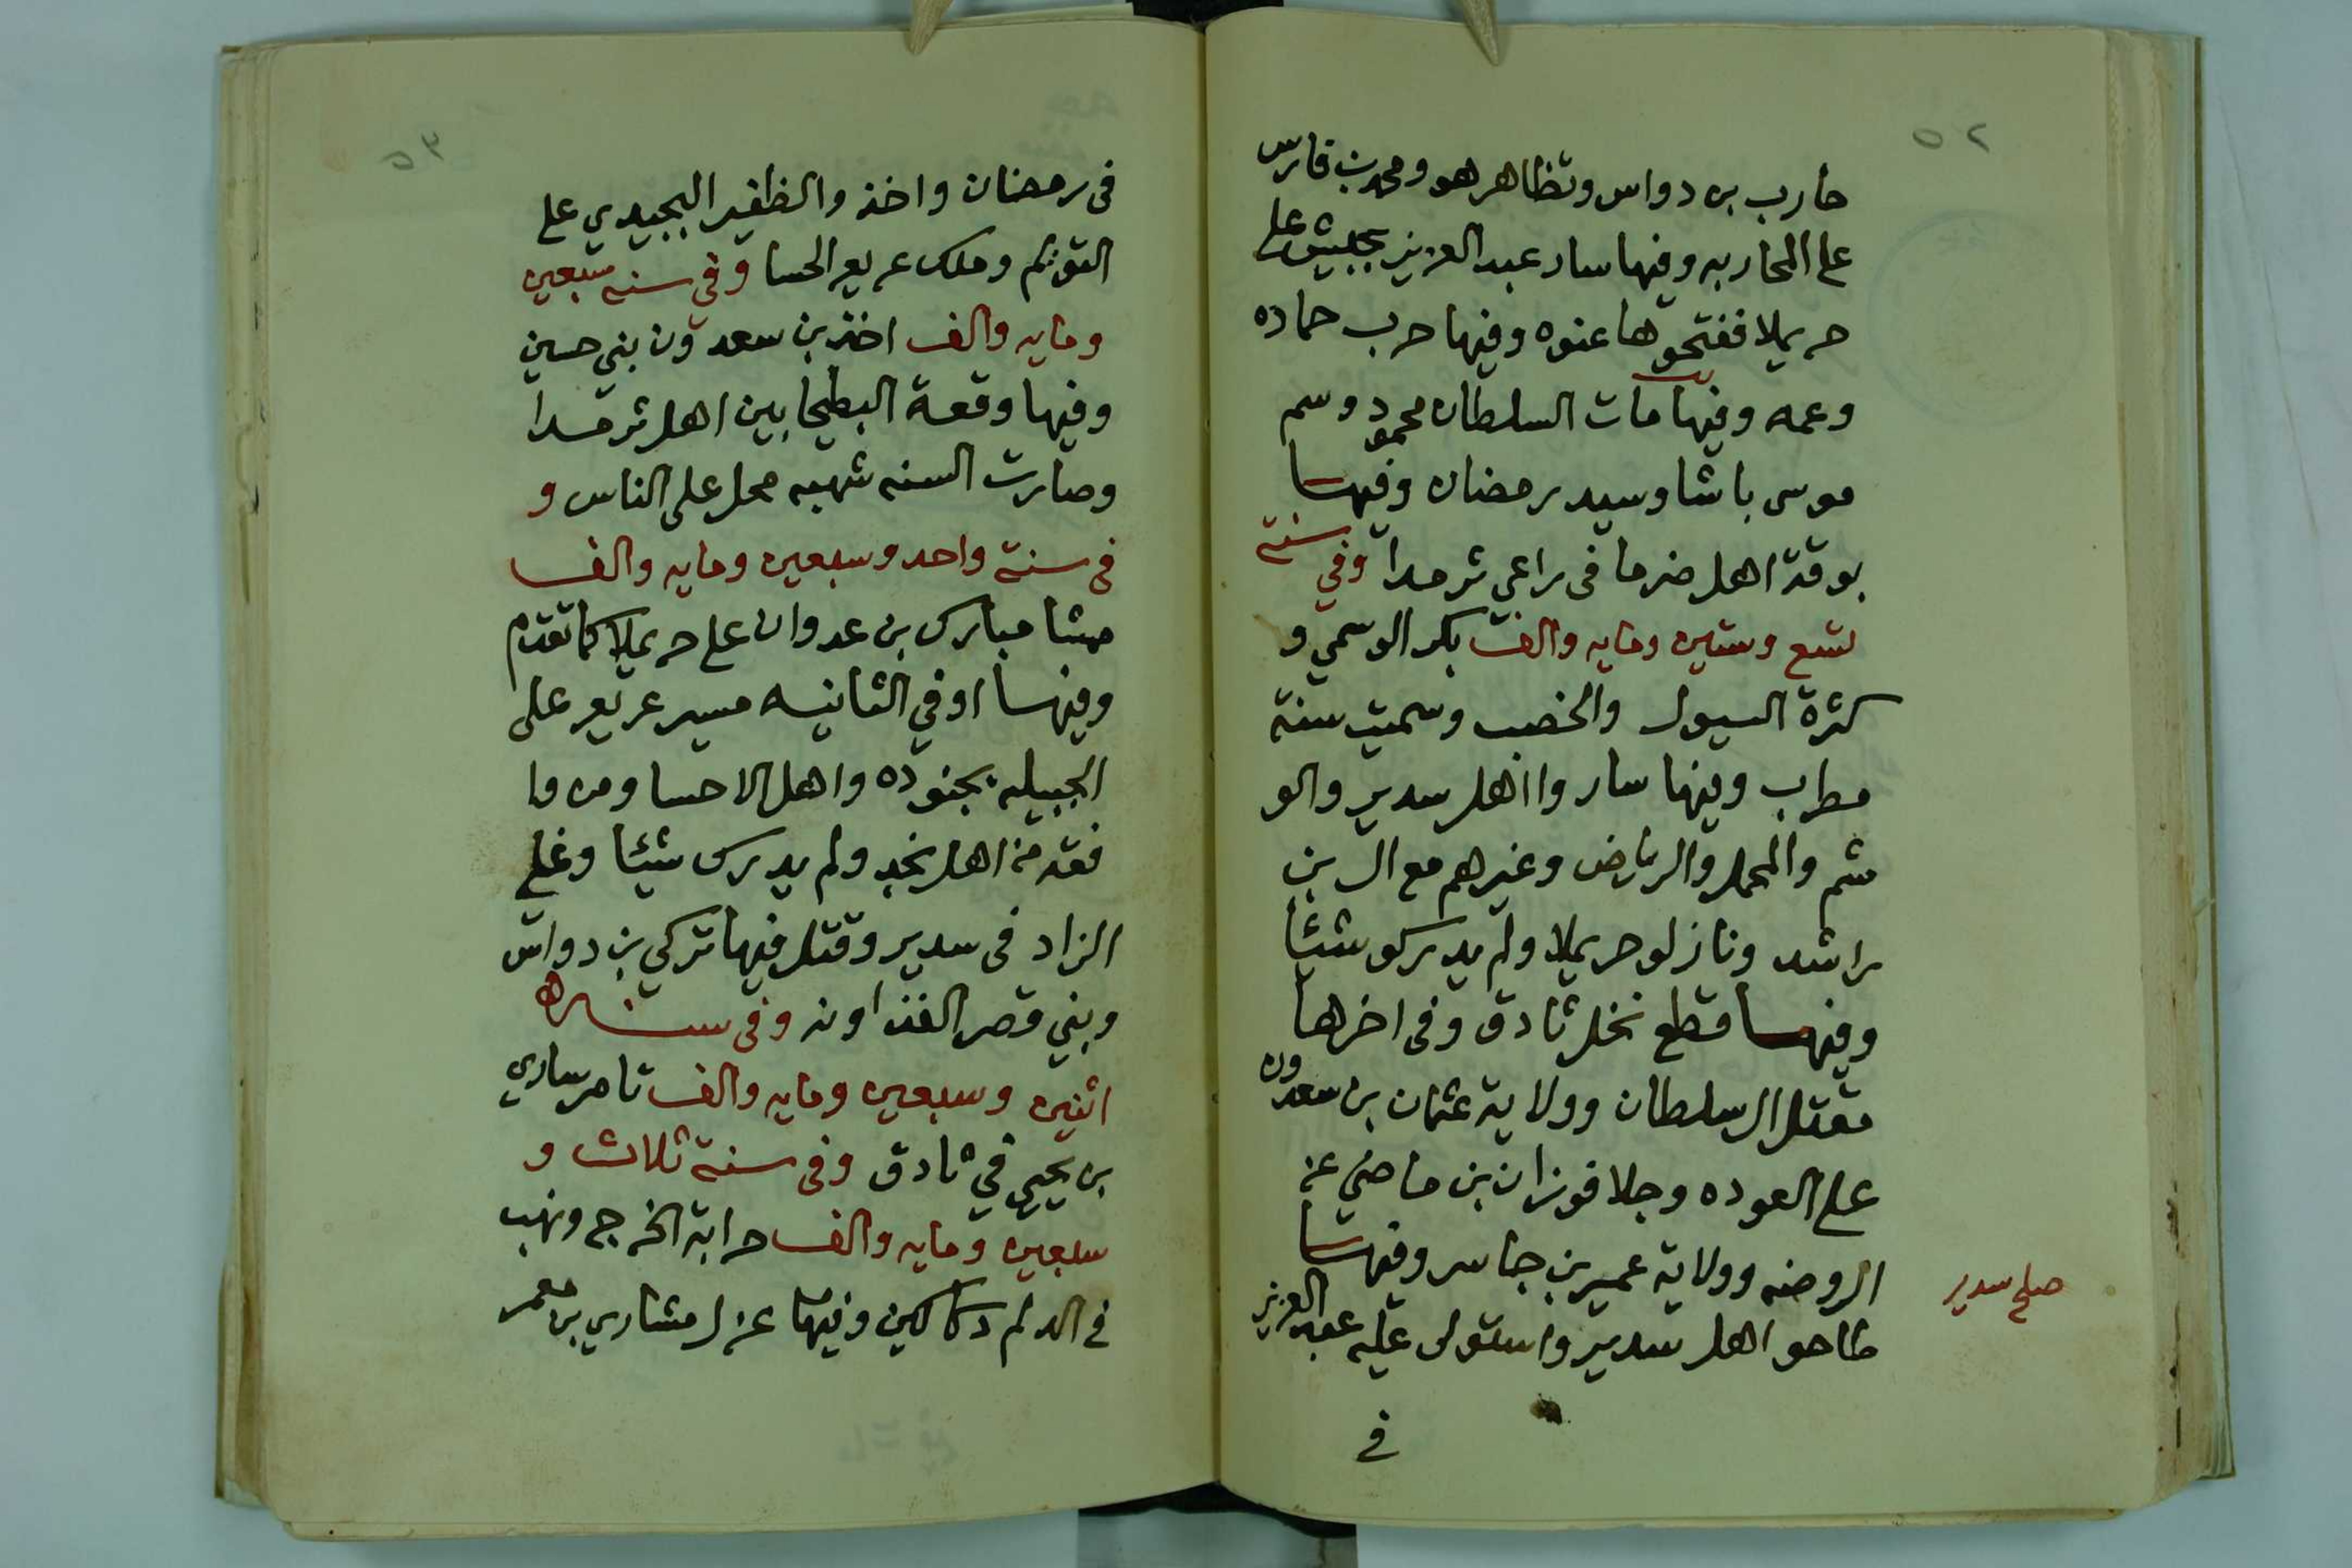 ٥٢
حارب بن دواس وتظاهر هو ومحمد بن فارس
على المحاربه وفيها سار عبد العزيز بجيش على
حريملا ففتحوها عنوه وفيها حرب حماده
وعمه وفيها مات السلطان محمود وسم
موسى باشا وسيد رمضان وفيها
بوقة اهل ضرما في راعي ثرمدا وفي سنة
تسع وستين ومايه والف بكر الوسمي و
كثرة السيول والخصب وسميت سنة
مطراب وفيها ساروا اهل سدير والو
شم والمحمل والرياض وغيرهم مع ال بن
راشد ونازلو حريملا ولم يدركو شيئا
وفيها قطع نخل ثادق وفي اخرها
مقتل ال سلطان وولاية عثمان بن سعدون
على العوده وجلا فوزان بن ماضي عن
الروضه وولاية عمير بن جاسر وفيها
طاحو اهل سدير واستولى عليه عبد العزيز
صلح سدير
في
٥٣
في رمضان واخذ والظفير البجيدي على
التويم وملك عريعر الحسا وفي سنه سبعين
ومايه والف اخذ بن سعدون بني حسين
وفيها وقعة البطيحا بين اهل ثرمدا
وصارت السنه شهبه محل على الناس و
في سنة واحد وسبعين ومايه والف
مشا مبارك بن عدوان على حريملا كما تقدم
وفيها او في الثانيه مسير عريعر على
الجبيله بجنوده واهل الاحسا ومن وا
فقه من اهل نجد ولم يدرك شيئا وغلي
الزاد في سدير وقتل فيها تركي بن دواس
وبني قصر الغذاونه وفي سنه
اثنين وسبعين ومايه والف تامر ساري
بن يحيى في ثادق وفي سنة ثلاث و
سبعين ومايه والف حرابة الخرج ونهب
في الدلم دكاكين وفيها عزل مشاري بن معمر